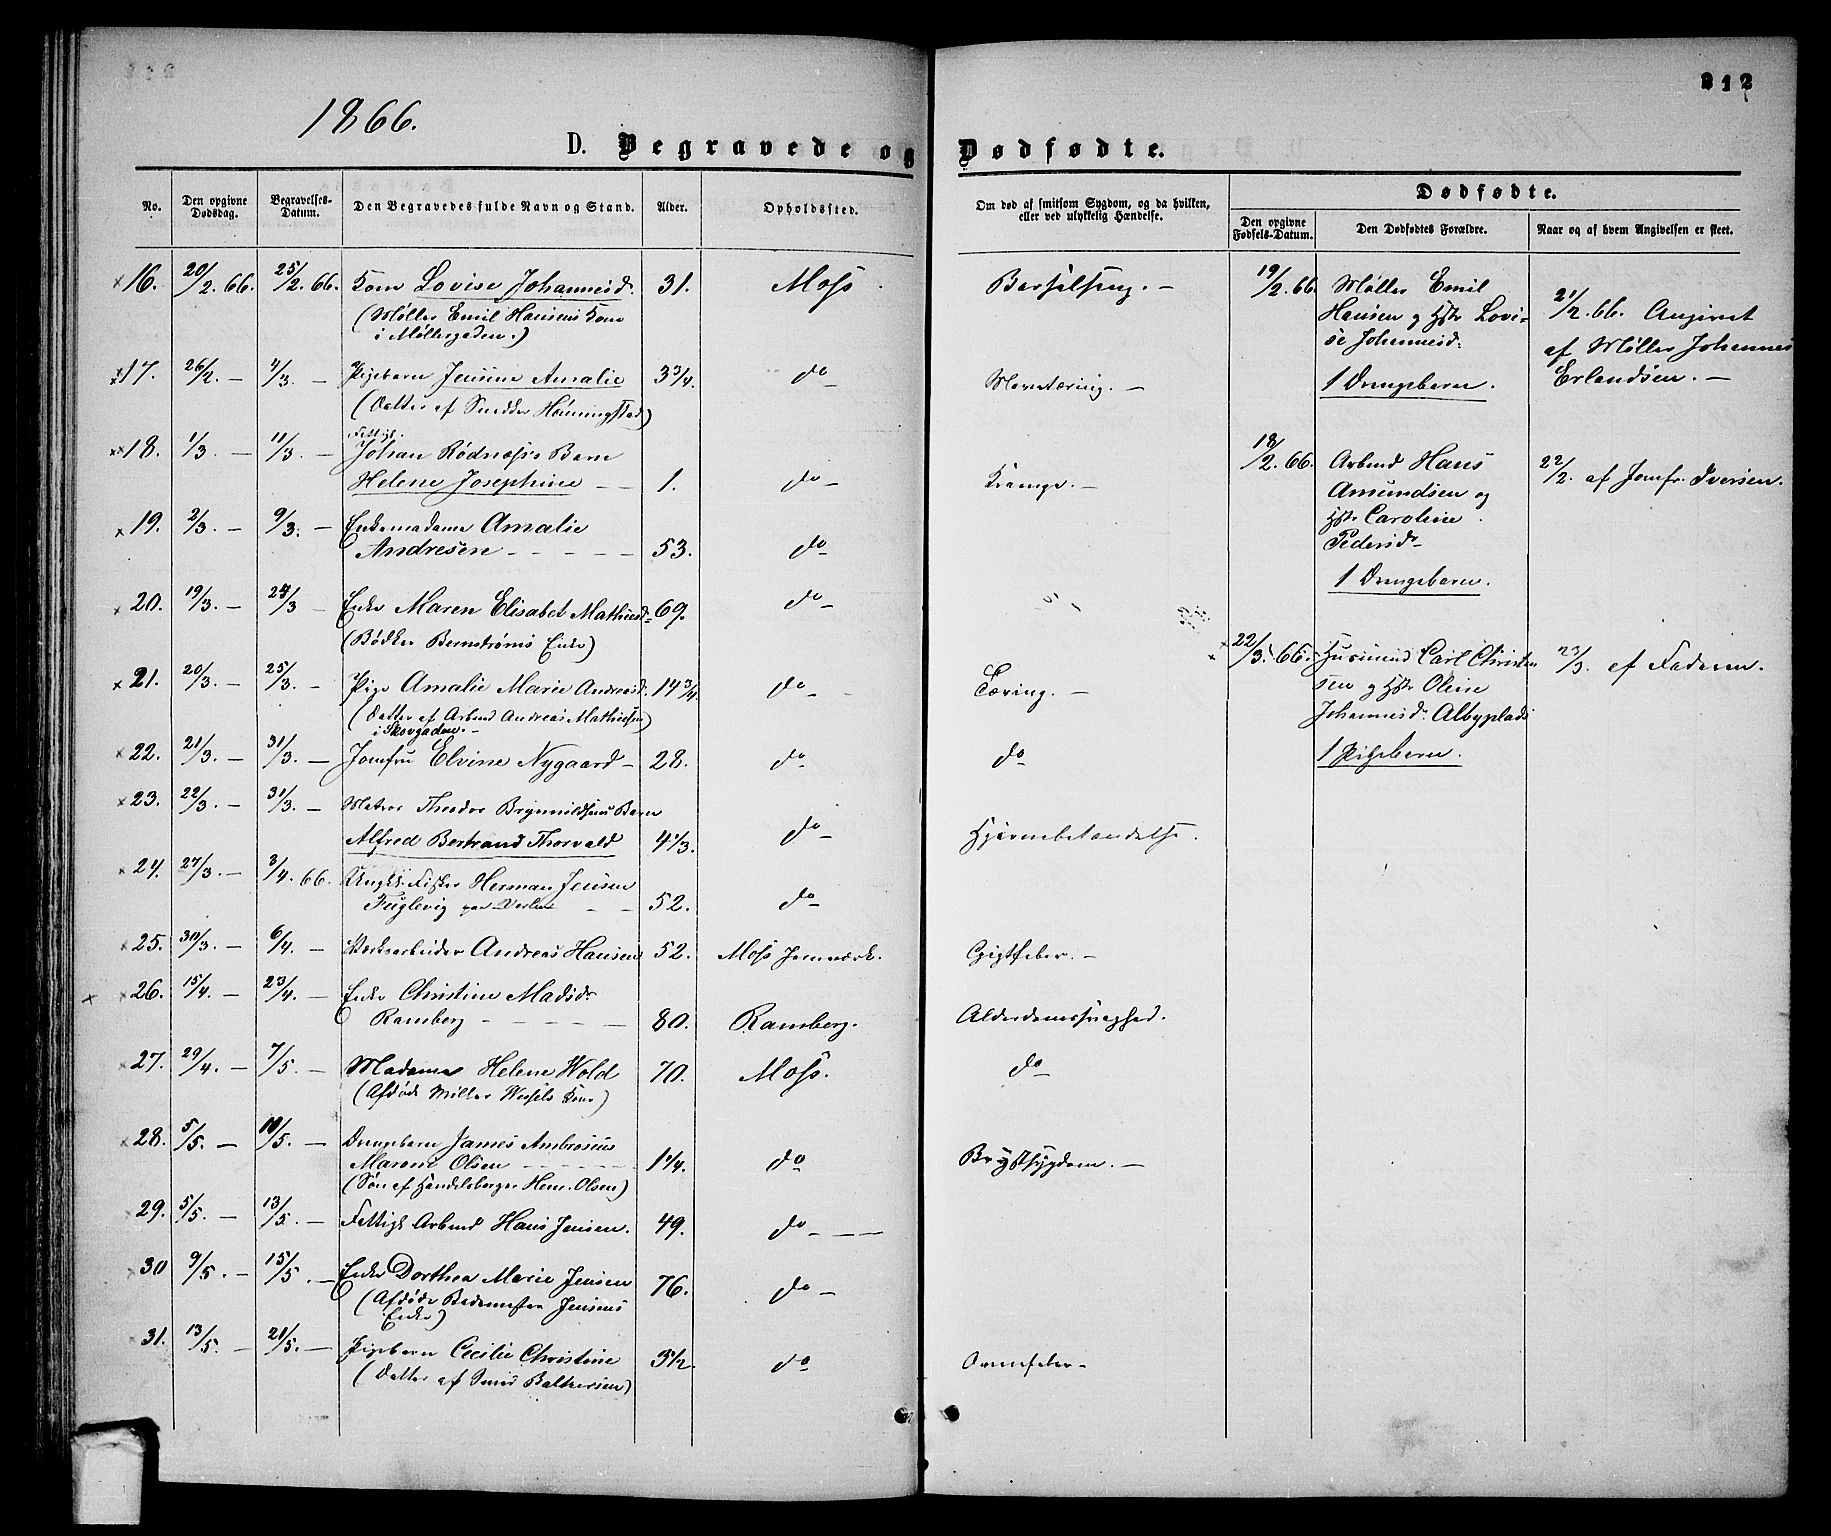 312
1866.
D. Begravede og Dødfødte.
No.
Den opgivne Dødsdag.
Begravelses-Datum.
Den Begravedes fulde Navn og Stand.
Alder.
Opholdssted.
Om død af smitsom Sygdom, og da hvilken, eller ved ulykkelig Hændelse.
Dødfødte.
Den opgivne Fødsels-Datum.
Den Dødfødtes Forældre.
Naar og af hvem Angivelsen er skeet.
16. 20/2. 66. 25/2. 66. Kone Lovise Johannesd. 31. Moss Barselseng. —
(Møller Emil Hansens Kone
i Møllergaden.)
17. 26/2. — 4/3. — Pigebarn Jensine Amalie 3 3/4. do Mavetæring. —
(Datter af Snedker Hønningstad)
18. 1/3. — 11/3. — Fattigl.
Johan Rødnæss Barn
Helene Josephine — 1. do Krampe. —
19. 2/3. — 9/3. — Enkemadame Amalie
Andresen — 53. do
20. 19/3. — 24/3 — Enke Maren Elisabet Mathiesd. 69. do
(Bødker Bernstrøms Enke)
21. 20/3. — 25/3. — Pige Amalie Marie Andreasd. 14 3/4 do — Tæring. —
(Datter af Arbmd Andreas Mathiesen)
i Skovgaden. —
22. 21/3. — 31/3. — Jomfru Elvine Nygaard — 28. do do
23. 22/3. — 31/3. — Matros Theodor Brynnildsens Barn
Alfred Bertrand Thorvald 4 1/3. do Hjernebetændelse.
24. 27/3. — 3/4. 66. Ungk. Fisker Herman Jensen
Fuglevig — 52. do
25. 30/3. — 6/4. — Værksarbeider Andreas Hansen 52. Moss Jernværk. Gigtfeber. —
26. 15/4. — 23/4. — Enke Christine Madsdr
Ramberg — 80. Ramberg. Alderdomssvaghed.
27. 29/4. — 7/5. — Madame Helene Wold 70. Moss. do
(Afdøde Møller Wessels Kone)
28. 5/5. — 10/5. — Drengebarn James Ambrosius
Marone Olsen — 1 1/4. do Brystsygdom. —
(Søn af Handelsborger Hem. Olsen)
29. 5/5. — 13/5. — Fattigl. Arbmd Hans Jensen. 49. do —
30 9/5. — 15/5. — Enke Dorthea Marie Jensen 76. do
(Afdøde Bademester Jensens
Enke)
31. 13/5. — 21/5. — Pigebarn Cecilie Christine 3 1/2. do
(Datter af Smed Baltzersen)
19/2. 66. Møller Emil
Hansen og Hstr Lovi-
se Johannesd.
1 Drengebarn.
21/2. 66. Angivet
af Møller Johannes
Erlandsen. —
18/2. 66. Arbmd Hans
Amundsen og
Hstr Caroline
Pedersdr
1 Drengebarn.
22/2. af Jomfr. Iversen.
22/3. 66. Husmand Carl Christen
sen og Hstr Oline
Johannesd. Albyplads
1 Pigebarn.
23/3. af Faderen.